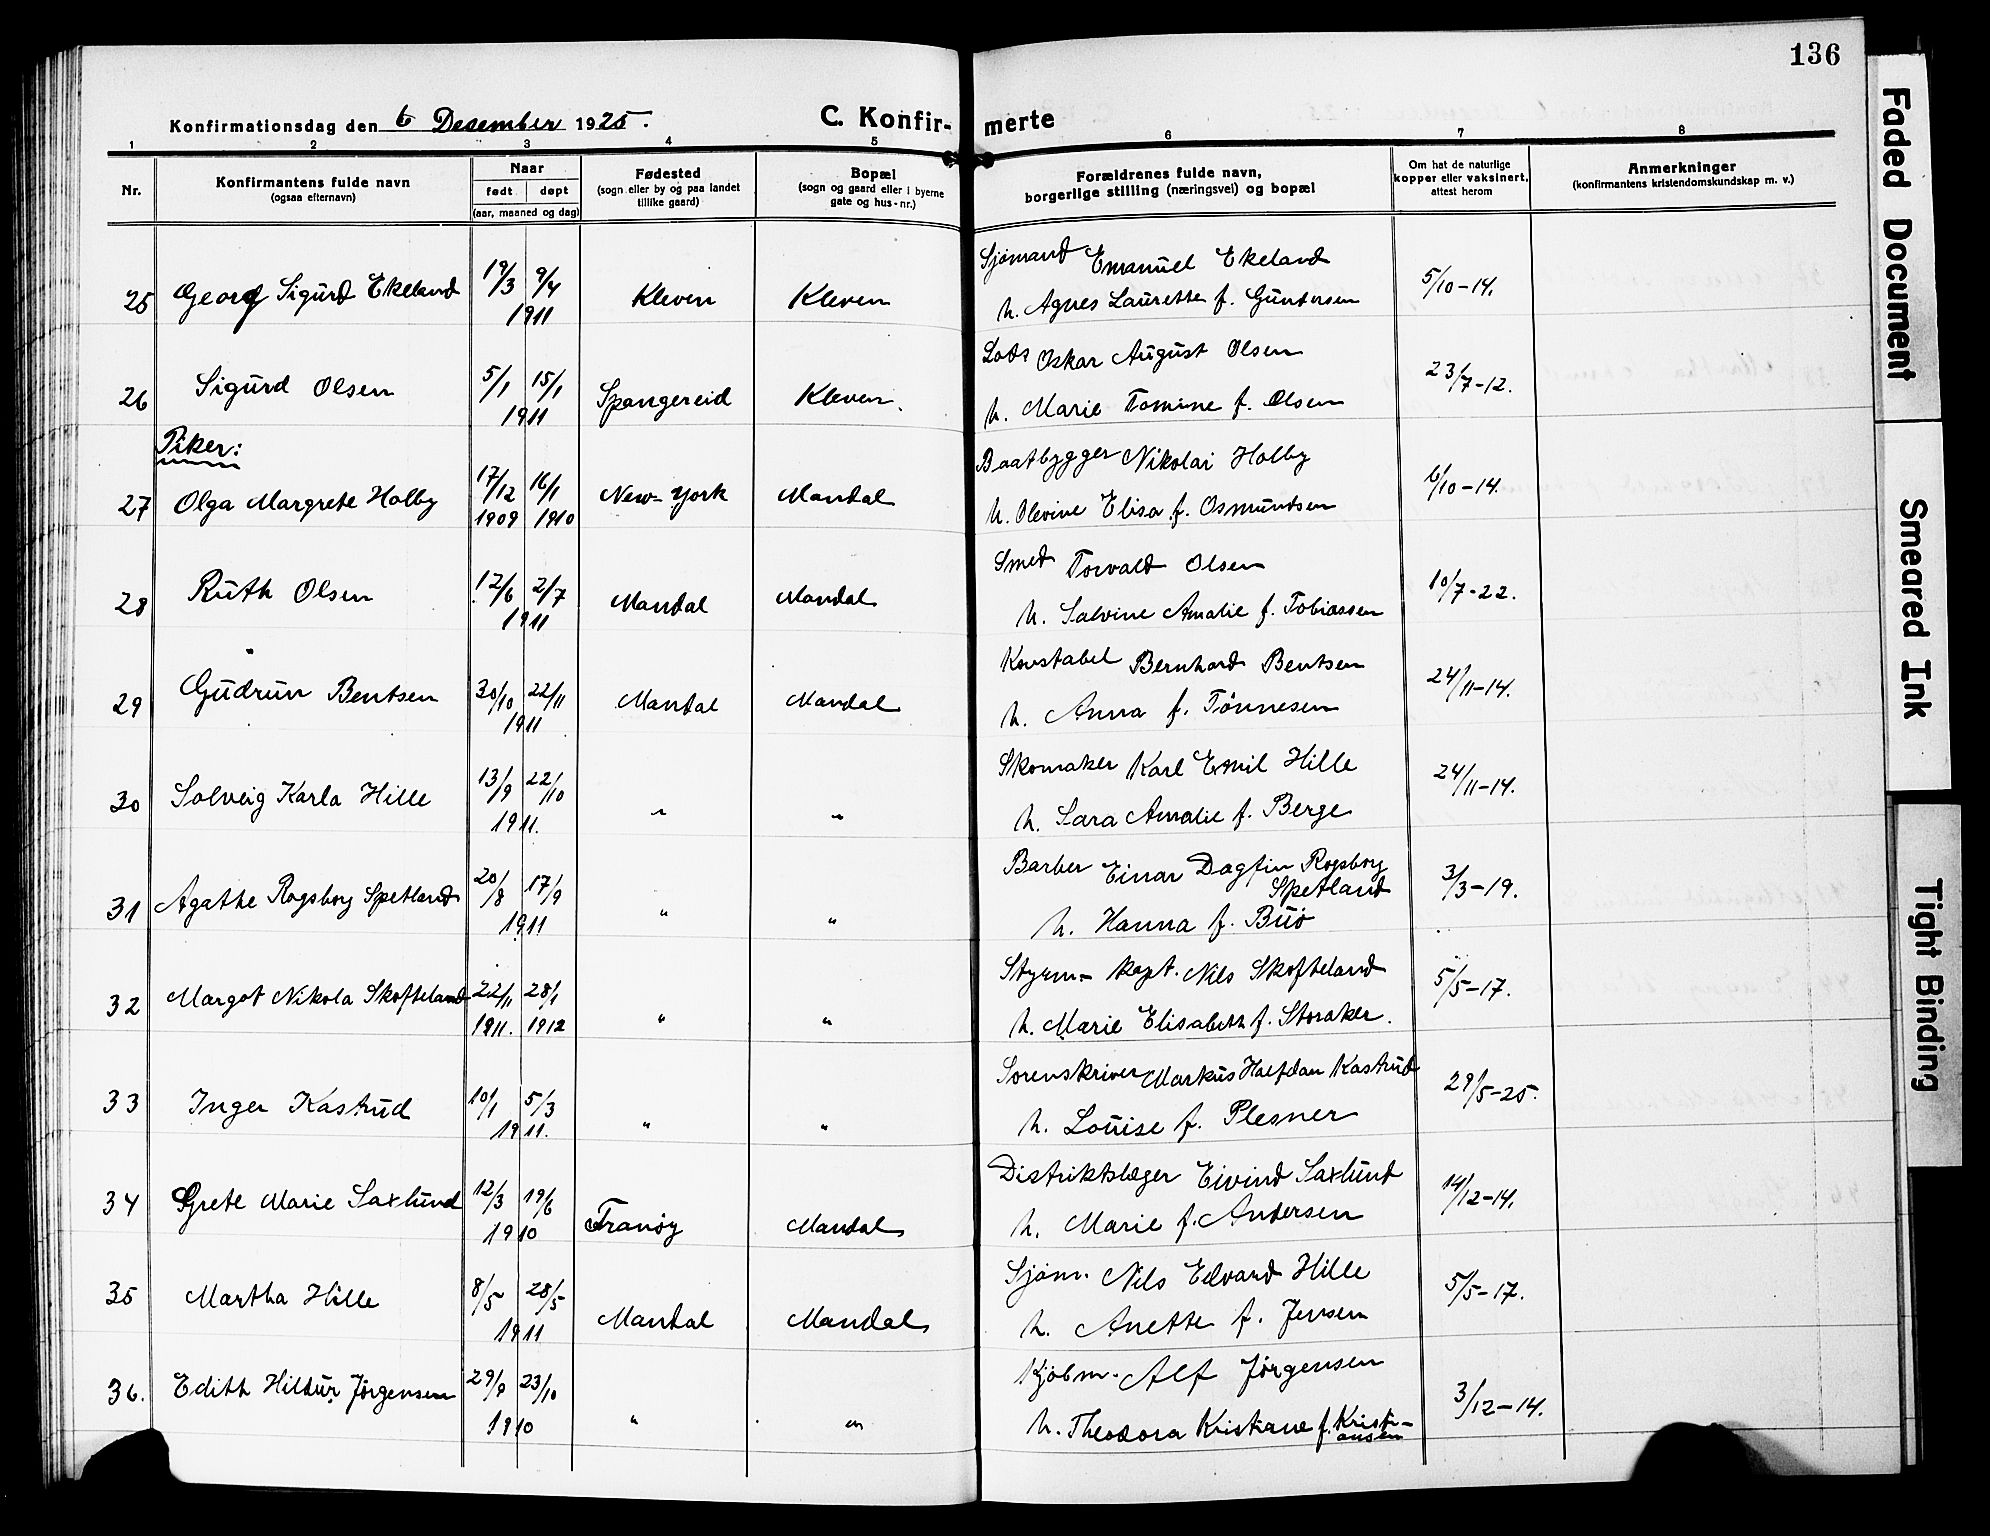 136
Konfirmationsdag den 6 Desember 1925.
C. Konfir- merte
1 2 3 4 5 6 7 8
Nr.
Konfirmantens fulde navn
(ogsaa efternavn)
Naar
født døpt
(aar, maaned og dag)
Fødested
(sogn eller by og paa landet
tillike gaard)
Bopæl
(sogn og gaard eller i byerne
gate og hus-nr.)
Forældrenes fulde navn,
borgerlige stilling (næringsvei) og bopæl
Om hat de naturlige
kopper eller vaksinert,
attest herom
Anmerkninger
(konfirmantens kristendomskundskap m. v.)
Sjømand Emanuel Ekeland
25 Georg Sigurd Ekeland 19/3 9/4 Kleven Kleven 5/10-14.
1911 h. Agnes Laurette f. Gundersen
Lods Oskar August Olsen
26 Sigurd Olsen 5/1 15/1 Spangereid Kleven. 23/7-12.
1911 h. Marie Tomine f. Olsen
Piker:
Baatbygger Nikolai Holby
27 Olga Margrete Holby 17/12 16/1 New-York Mandal 6/10-14.
1909 1910 h. Olevine Elisa f. Osmundsen
Smed Torvald Olsen
28 Ruth Olsen 12/6 2/7 Mandal Mandal 10/7-22.
1911 h. Salvine Amalie f. Tobiassen
Konstabel Bernhard Bentsen
29 Gudrun Bentsen 30/10 22/11 Mandal Mandal 24/11-14.
1911 h. Anna f. Tønnesen
Skomaker Karl Emil Hille
30 Solveig Karla Hille 13/9 22/10 " " 24/11-14.
1911. h. Sara Amalie f. Berge
Barber Einar Dagfin Rogsborg
Spetland
31 Agathe Rogsborg Spetland 20/8 17/9 " " 3/3-19.
1911 h. Hanna f. Buø
Styrm- kapt. Nils Skofteland
32 Margot Nikola Skofteland 22/11 28/1 " " 5/5-17.
1911. 1912 h. Marie Elisabeth f. Storaker.
Sorenskriver Markus Halfdan Kastrud
33 Inger Kastrud 10/1 5/3 " " 29/5-25.
1911. h. Louise f. Plesner
Distriktslæger Eivind Saxlund
34 Grete Marie Saxlund 12/3 19/6 Tranøy Mandal 14/12-14.
1910 h. Marie f. Andersen
Sjøm. Nils Edvard Hille
35 Martha Hille 8/5 28/5 Mandal Mandal 5/5-17.
1911 h. Anette f. Jensen
Kjøbm. Alf Jørgensen
36. Edith Hildur Jørgensen 29/9 23/10 " " 3/12-14.
1910 h. Theodora Kristiane f. Kristi-
ansen
Faded Document
Smeared Ink
Tight Binding